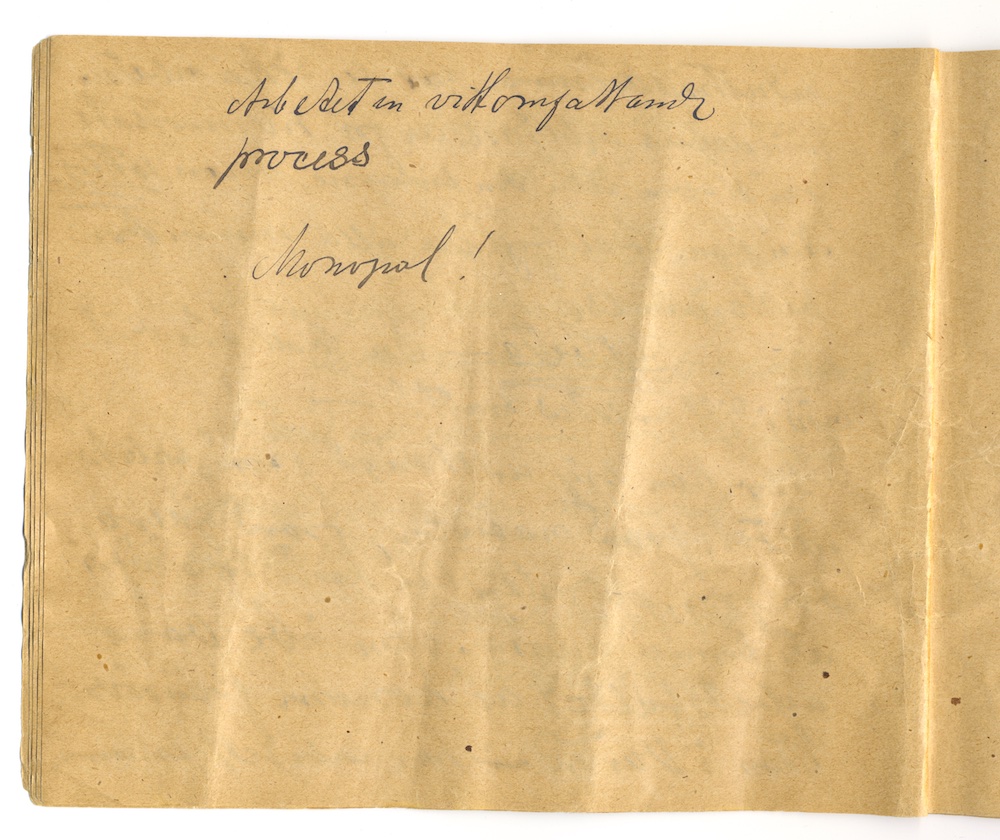 Arbetet en vittomfattande
process
Monopol!